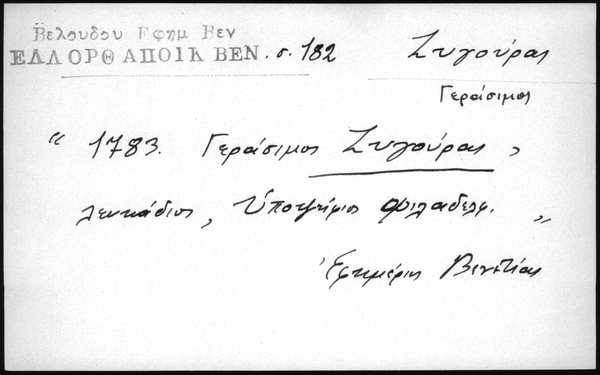 Βελουδου Εφημ Βεν
ΕΛΛΟΡΘ ΑΠΟΙΚ ΒΕΝ. σ. 182
Ζυγούρας
Γεράσιμος
“ 1783. Γεράσιμος Ζυγούρας,
λευκάδιος, Ὑποψήφιος Φιλαδελφ. „
Ἐφημέρις Βενετίας